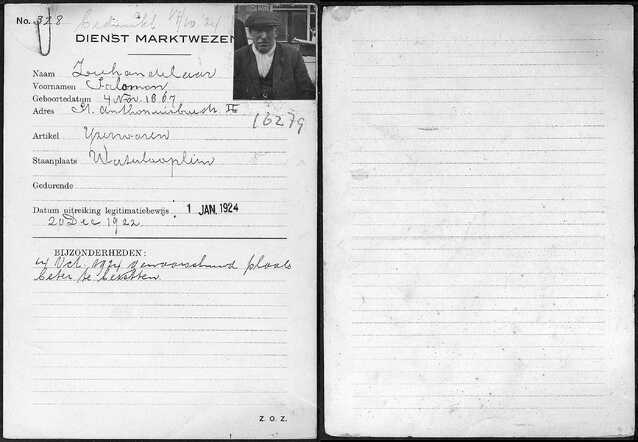 No. 328 Bedankt 17/10 24
DIENST MARKTWEZEN
Naam Zeehandelaar
Voornamen Salomon
Geboortedatum 4 Nov. 1867
Adres St. Anthoniesbreestr.
16279
Artikel Yzerwaren
Staanplaats Waterlooplein
Gedurende
Datum uitreiking legitimatiebewijs 1 JAN. 1924
20 Dec 1922
BIJZONDERHEDEN:
Oct. 1924 gewaarschuwd plaats
beter te bezetten
Z. O. Z.